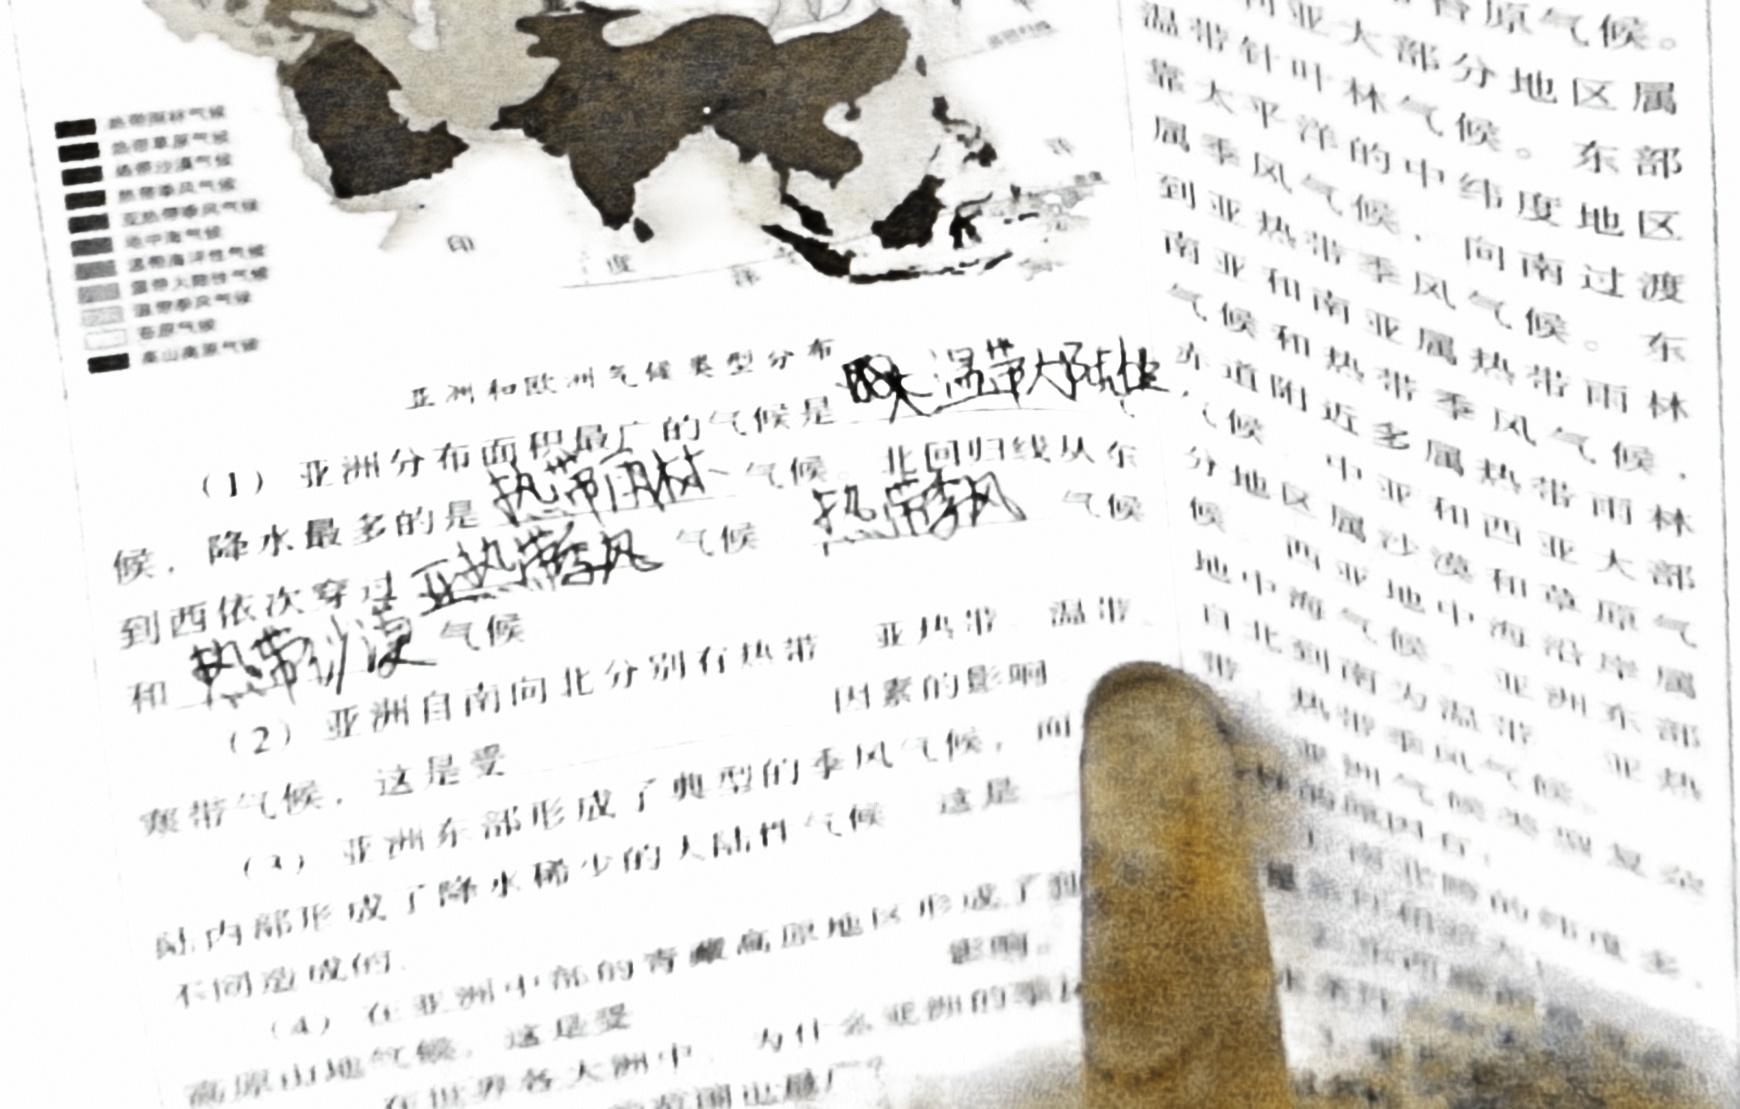 热带雨林气候
热带草原气候
热带沙漠气候
热带季风气候
亚热带季风气候
地中海气候
温带海洋性气候
温带大陆性气候
温带季风气候
苔原气候
高山高原气候
印
度
洋
洋
亚洲和欧洲气候类型分布
(1) 亚洲分布面积最广的气候是 温带大陆性 气
候，降水最多的是 热带雨林 气候。北回归线从东
到西依次穿过 亚热带季风 气候 热带季风 气候
和 热带沙漠 气候
(2) 亚洲自南向北分别有热带 亚热带 温带
寒带气候，这是受 因素的影响
(3) 亚洲东部形成了典型的季风气候，向
陆内部形成了降水稀少的大陆性气候 这是
不同造成的.
(4) 在亚洲中部的青藏高原地区形成了
高原山地气候，这是受 影响。
在世界各大洲中，为什么亚洲的季
范围也最广？
原气候。
亚大部分地区属
温带针叶林气候。东部
靠太平洋的中纬度地区
属季风气候，向南过渡
到亚热带季风气候。东
南亚和南亚属热带雨林
气候和热带季风气候，
赤道附近多属热带雨林
气候 中亚和西亚大部
分地区属沙漠和草原气
候 西亚地中海沿岸属
地中海气候 亚洲东部
自北到南为温带 亚热
带、热带季风气候。
亚洲气候类型复杂
的原因有: